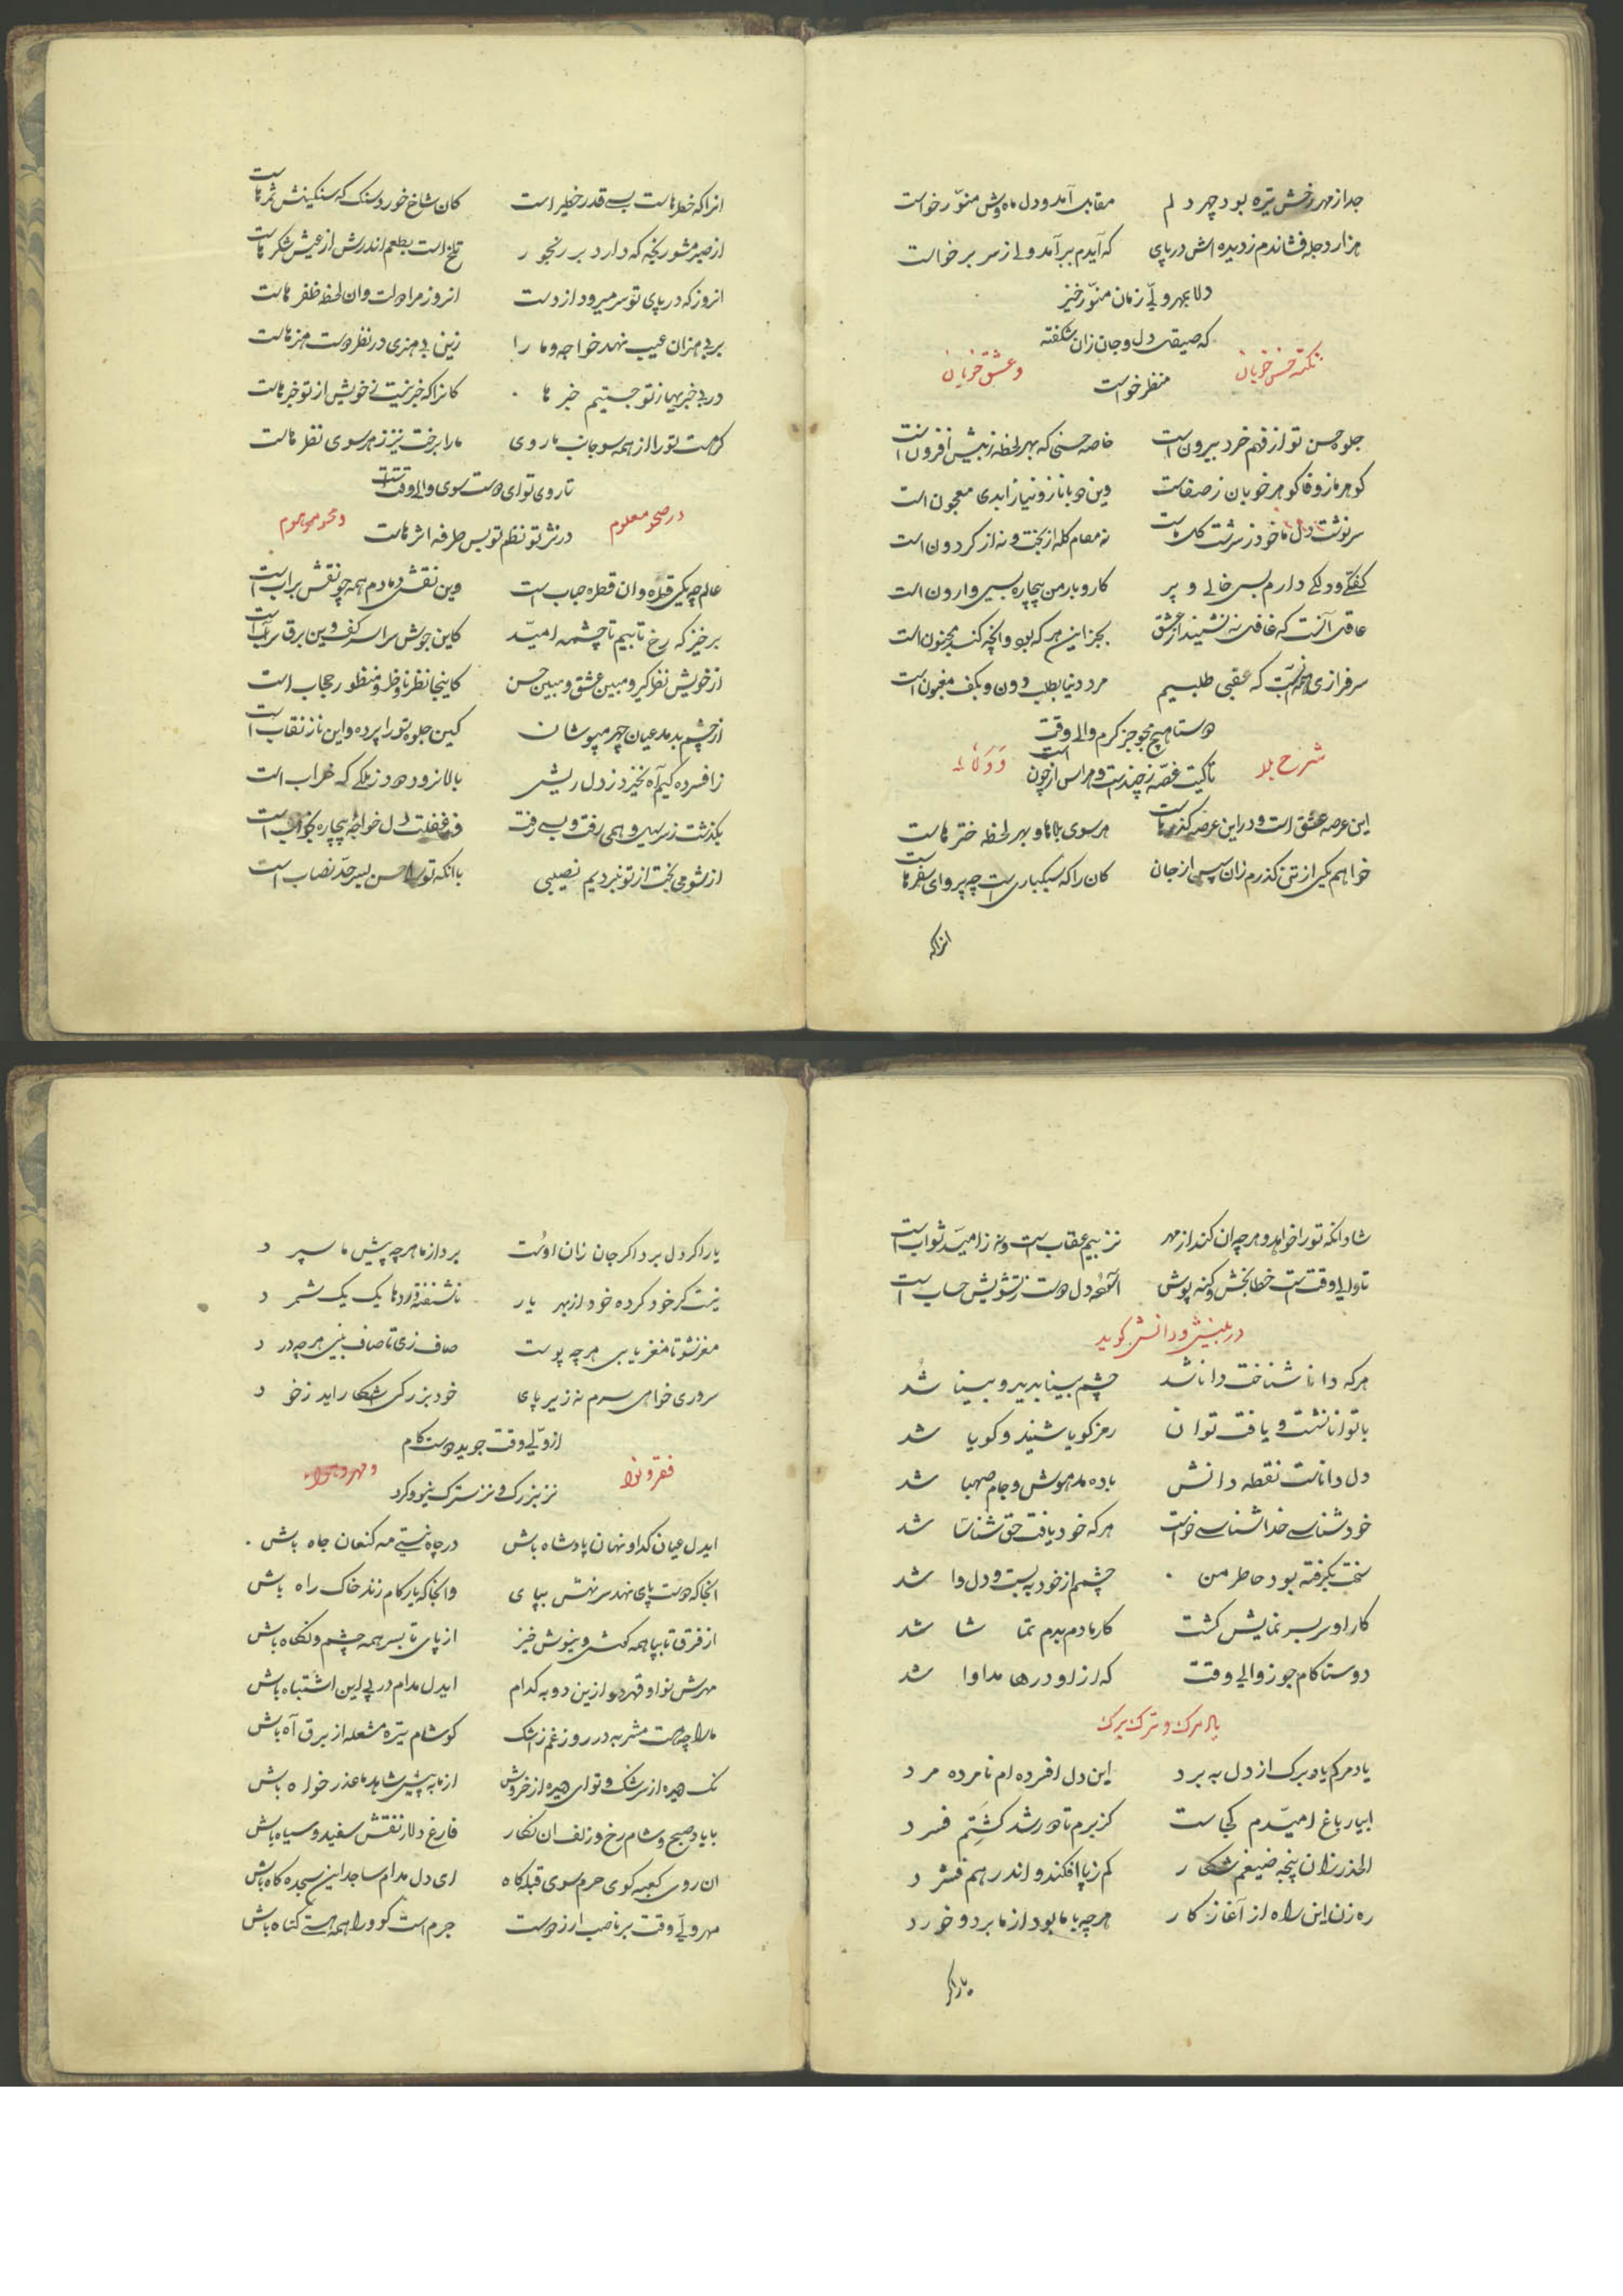 جدا از مهر رخش تیره بود چهر دلم مقابل آمد و دل ماه وش منور خواست
هزار دجله فشاندم ز دیده اش در پای که آیدم ببر آمد ولے از سر بر خواست
دلا بمهر ولیّ زمان منوّر خیز
که صیقل دل و جان زان شکفته
نکته حسن خوبان و عشق خوبان
منظر خواست
جلوه حسن تو از فهم خرد بیرون است خاصه حسنی که بهر لحظه ز پیش افزون است
کوهر ما ز وفا کوهر خوبان ز صفاست وین دو با ناز و نیاز ابدی معجون است
سرنوشت دل ما خود ز سرشت کله است نه مقام کله از بخت و نه از کردون است
کفکے و دلکے دارم بس خالے و پر کار و بار من بیچاره بسی وارون است
عاقل آنست که غافل نه نشیند از عشق بجز این هر که بود وانچه کند مجنون است
سرفرازی همه آنست که عقبی طلبیم مرد دنیا بطلب دون و بکف مغبون است
دوستا هیچ مجو جز کرم والی وقت
شرح بلا و ولا
تا کیت غصه ز چند است و هراس از چون است
این عرصه عشق است و در این عرصه کذرهاست هر سوی بلاها و بهر لحظه خطرهاست
خواهم یکی از تن کذرم زان سپس از جان کان را که سبکباری است چه پروای سفرهاست
انراکه
انرا که خطرهاست بسے قدر خطیر است کان شاخ خورد سنک که سنکینش ثمرهاست
از صبر مشو رنجه که دارد بر رنجور تلخ است بطعم اندرش از عیش شکرهاست
انروز که در پای تو سر میرود از دست انروز مرا دولت و ان لحظه ظفرهاست
بر بی هنران عیب نهد خواجه و ما را زین بی هنری در نظر دوست هنرهاست
در بی خبریها ز تو جستیم خبرها کانرا که خبر نیست ز خویش از تو خبرهاست
کر هست تو را از همه سو جانب ما روی ما را برخت نیز ز هر سوی نظرهاست
تا روی تو ای دوست سوی والی وقت است
در صحو معلوم و محو موهوم
در نثر تو نظم تو بس طرفه اثرهاست
عالم چو یکی قطره و ان قطره حباب است وین نقش دمادم همه چو نقش بر آب است
برخیز که رخ تابیم تا چشمه امیّد کاین جوش سراسر کف و این برق سراب است
از خویش نظر کیر و مبین عشق و مبین حسن کاینجا نظر و ناظر و منظور حجاب است
از چشم بد مدعیان چهر مپوشان کین جلوه تو را پرده و این ناز نقاب است
ز افسرده کیم آه نخیزد ز دل ریش بالا نرود دود ز ملکے که خراب است
بکذشت ز سر سیل و همی رفت و بسے رفت در غفلت دل خواجه بیچاره بخواب است
از شومی بخت از تو نبردیم نصیبی با انکه تو را حسن بسر حدّ نصاب است
شاد انکه تو را خواهد و هر چه ان کند از مهر نز بیم عقاب است و نه ز امیّد ثواب است
تا والی وقت است خطابخش و کنه پوش آسوده دل دوست ز تشویش حساب است
در بینش و دانش کوید
هر که دانا شناخت دانا شد چشم بینا بدید و بینا شد
با توانا نشست و یافت توان رمز کویا شنید و کویا شد
دل داناست نقطه دانش باده مدهوش و جام صهبا شد
خودشناسے خداشناسے خواست هر که خود یافت حق شناسا شد
سخت بگرفته بود خاطر من چشمم از خود ببست و دل وا شد
کار او سربسر نمایش کشت کار ما دم بدم تماشا شد
دوستا کام جو ز والی وقت که از او دردها مداوا شد
یاد مرک و ترک برک
یاد مرکم یاد برک از دل ببرد این دل افسرده ام نامرده مرد
ابیار باغ امیّدم کجاست کز برم تا دور شد کِشتم فسرد
الحذر زان پنجه ضیغم شکار کم ز پا افکند و اندر هم فشرد
ره زن این راه از آغاز کار هر چه با ما بود از ما برد و خورد
یارا کر
یار اکر دل برد اکر جان زان اوست برد از ما هر چه پیش ما سپرد
نیست کر خود کرده خود از بهر یار ناشنفته دردها یک یک شمرد
مغز شو تا مغز یابی هر چه پوست صاف زی تا صاف بینی هر چه درد
سروری خواهی سرم نه زیر پای خود بزرکی آشکار اید ز خورد
از ولیّ وقت جوید دوست کام
فقر و نوا و مهر و جفا
نز بزرک و نز سترک و نیو و کرد
ایدل عیان کدا و نهان پادشاه باش در چاه نیستے مه کنعان جاه باش
انجا که دوست پای نهد سر نهش بپای وانجا که یار کام زند خاک راه باش
از فرق تا بپا همه کوش و نیوش خیز از پای تا بسر همه چشم و نکاه باش
مهرش نوا و قهر دوا زین دو به کدام ایدل مدام در پی این اشتباه باش
ما را چه هست مشربه در روز غم ز اشک کو شام تیره مشعله از برق آه باش
نک دیده از سرشک و تو ای دیده از خروش از ما به پیش شاهد ما عذرخواه باش
با یاد صبح و شام رخ و زلف ان نکار فارغ دلا ز نقش سفید و سیاه باش
ان روی کعبه کوی حرم سوی قبله کاه ای دل مدام ساجد این سجده کاه باش
مهر ولیّ وقت بر ناصب ار ز دوست جرم است کو ورا همه هستے کناه باش